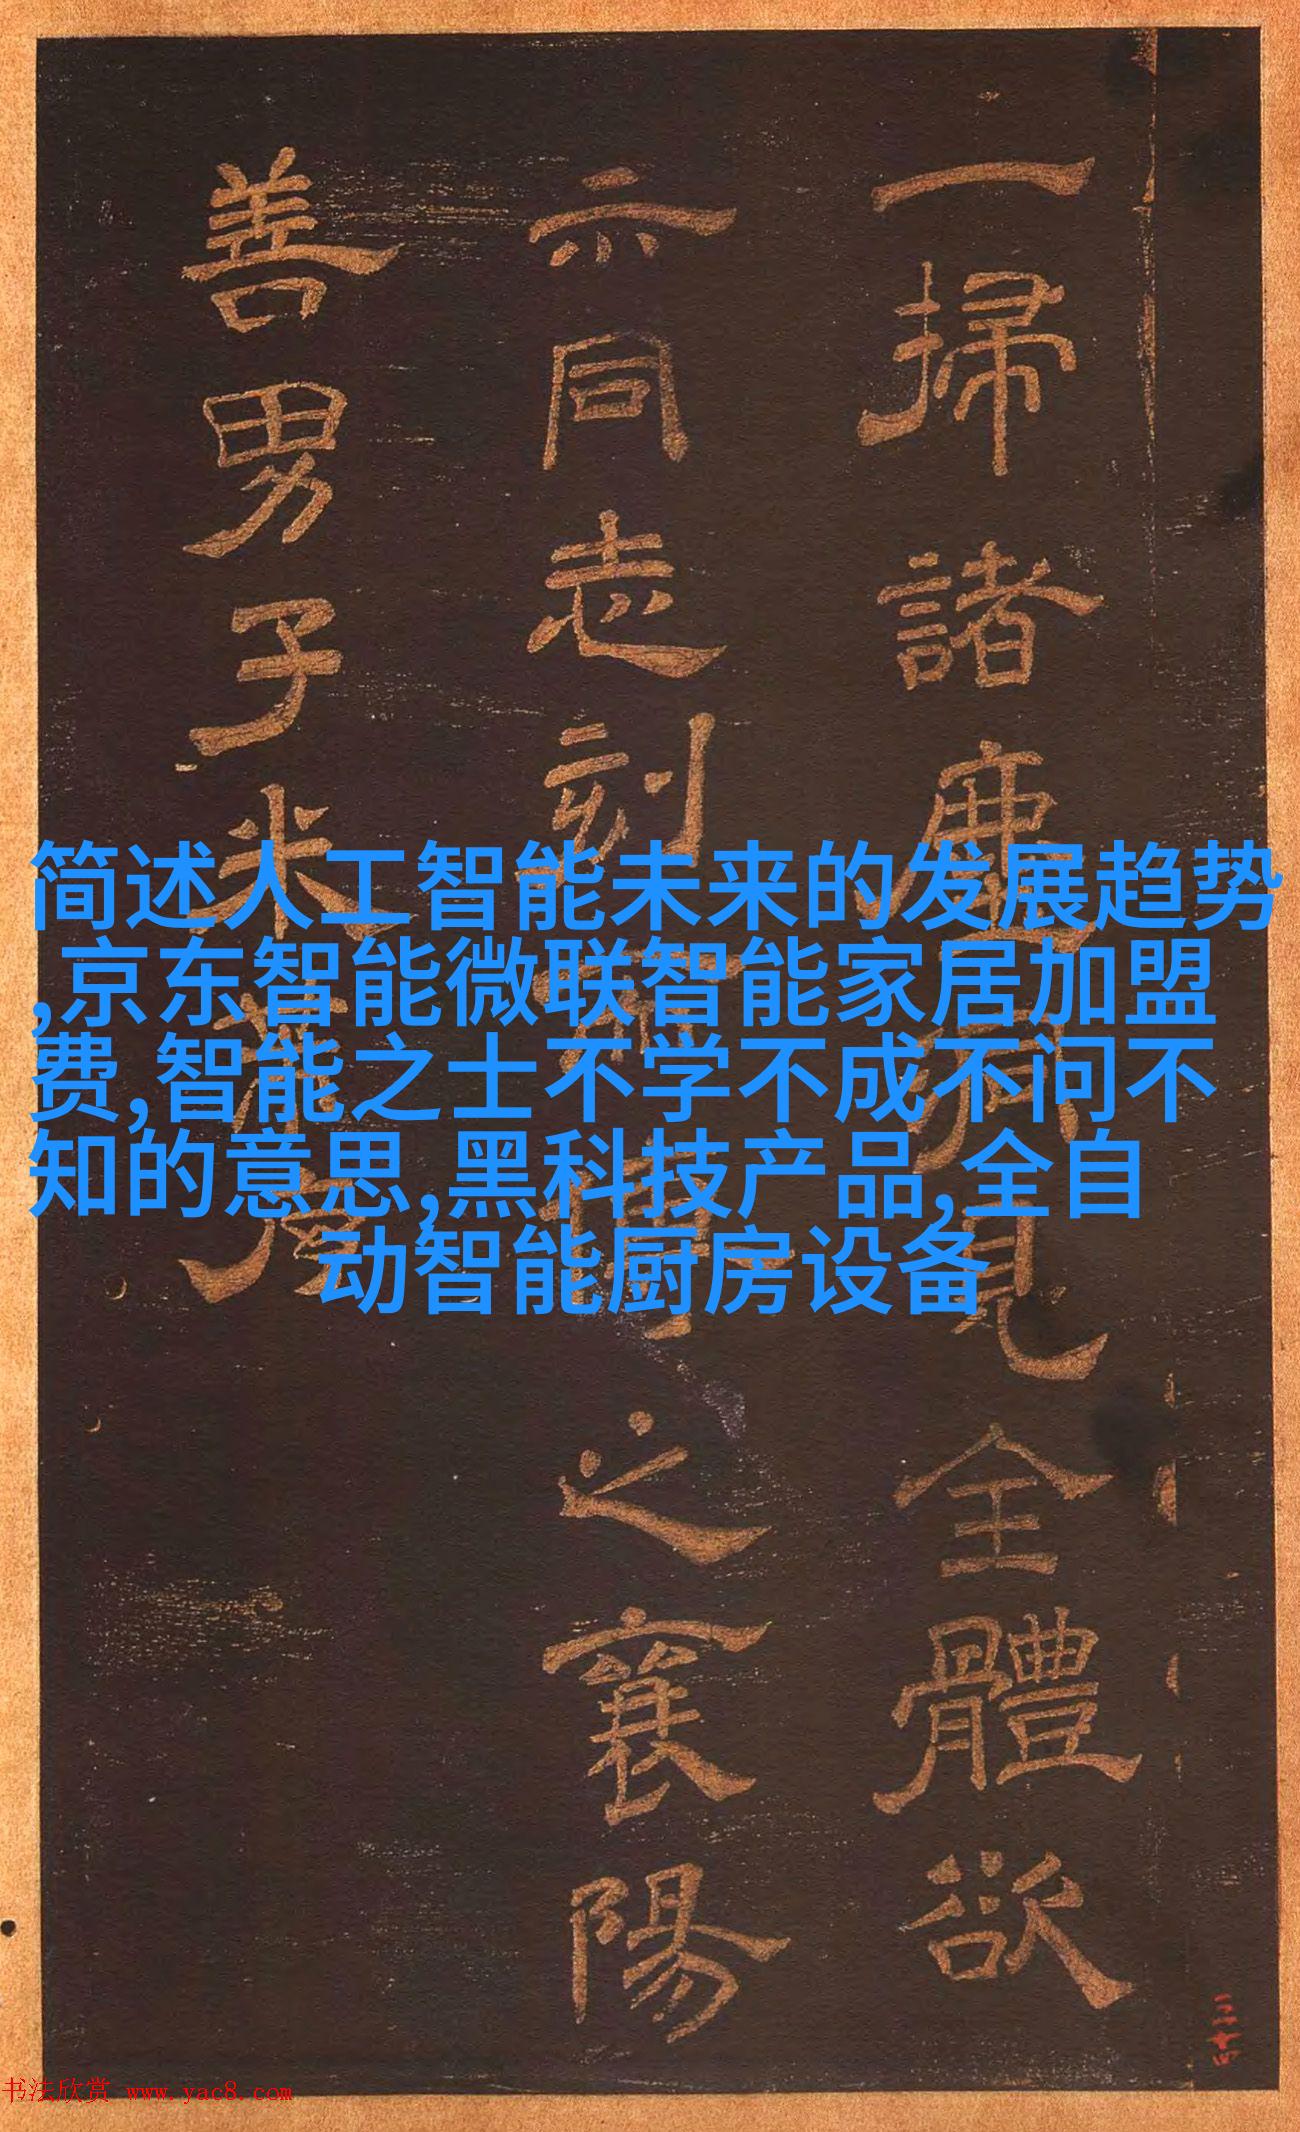 一掃諸
見全體欲
示同志刻
之襄陽
善男子米
简述人工智能未来的发展趋势
,京东智能微联智能家居加盟
费,智能之士不学不成不问不
知的意思,黑科技产品,全自
动智能厨房设备
三十四
书法欣赏 www.yac8.com